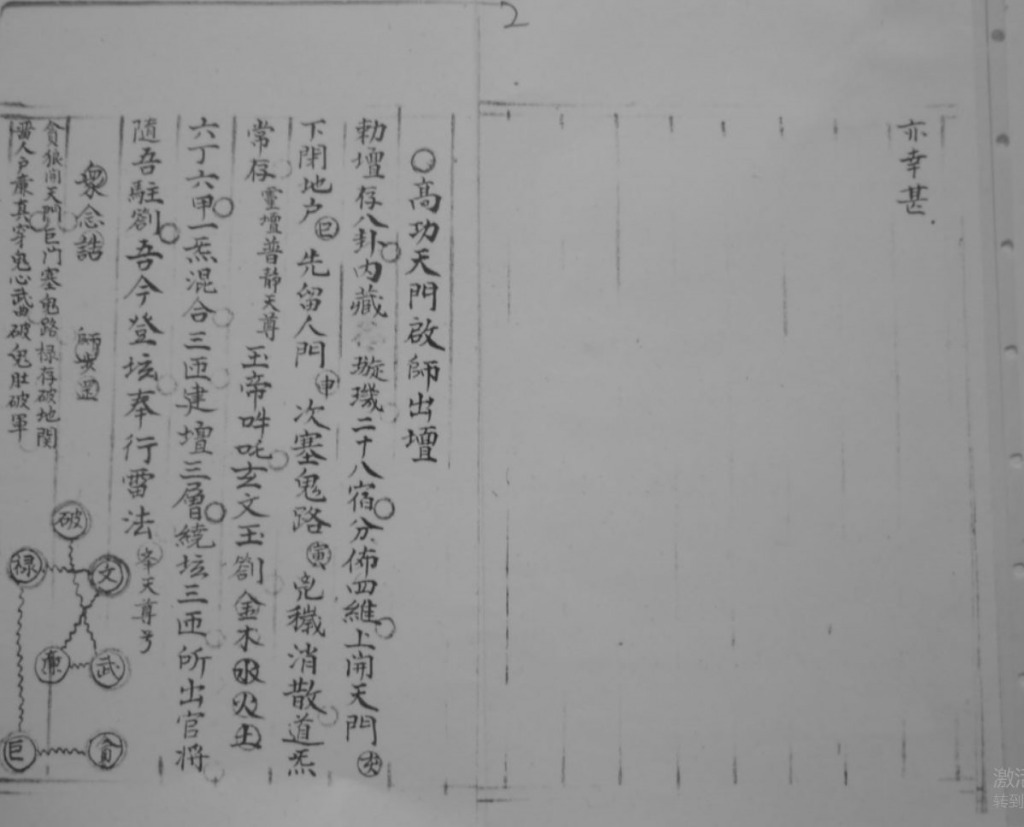 2
亦幸甚.
○高功天門啟師出壇
勅壇存八卦內藏 璇璣二十八宿分佈四維上開天門
下閉地户 先留人門 申 次塞鬼路 寅 兇穢消散道炁
常存 靈壇普靜天尊 玉帝吽吒玄文玉劄金木水火土
六丁六甲一炁混合三匝建壇三層繞坛三匝所出官将
隨吾駐劄吾今登坛奉行雷法
眾念誥 師步罡
貪狼開天門巨门塞鬼路禄存破地関
人户廉真穿鬼心武曲破鬼肚破軍
破
禄 文
廉 武
巨 貪
激活
转到